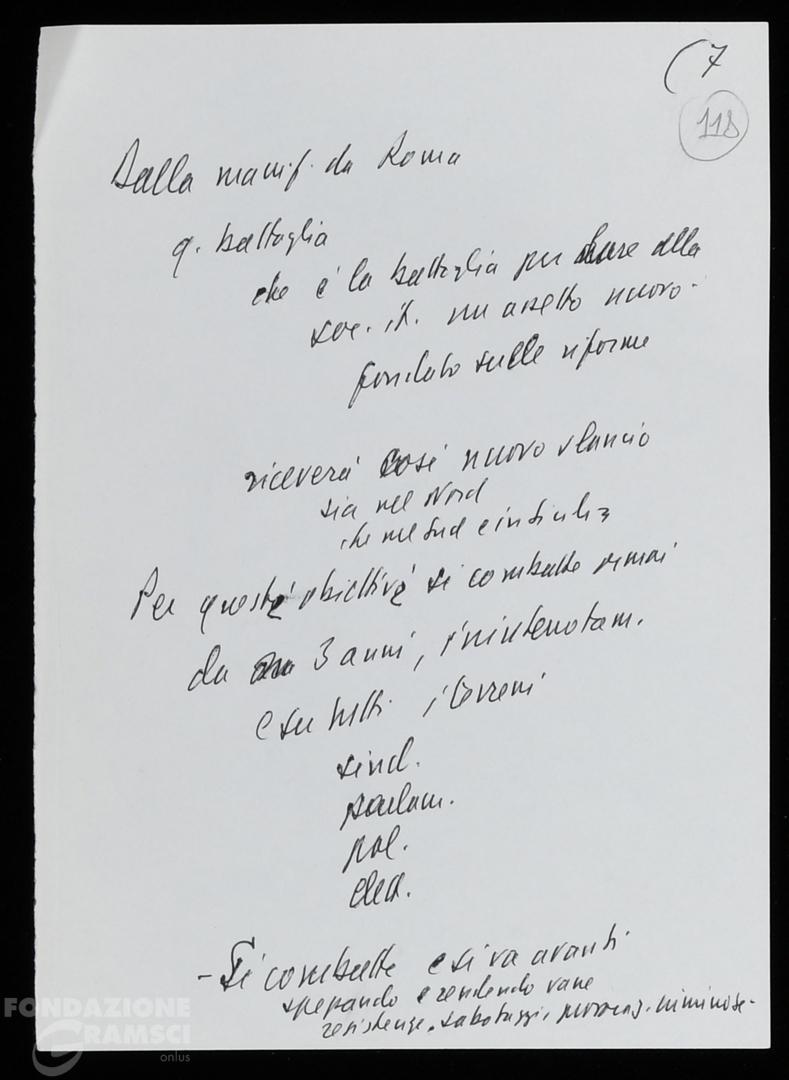 (7
118
Dalla manif. da Roma
q. battaglia
che è la battaglia per dare alla
soc. it. un assetto nuovo -
fondato sulle riforme
riceverà così nuovo slancio
sia nel Nord
che nel Sud e in Sicilia
Per questi obiettivi si combatte ormai
da 3 anni, ininterrottam.
e su tutti i terreni
sind.
parlam.
pol.
elett.
- Si combatte e si va avanti
spezzando e rendendo vane
resistenze, sabotaggi, provocaz. criminose -
FONDAZIONE
GRAMSCI
onlus